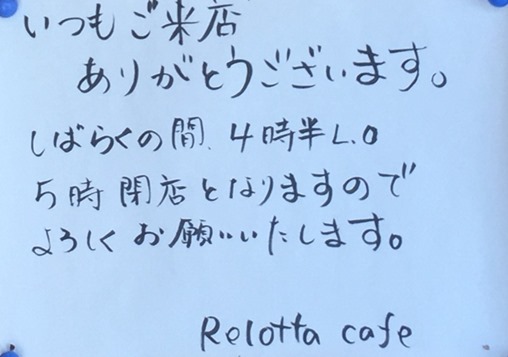 いつもご来店
ありがとうございます。
しばらくの間、4時半L.O
5時閉店となりますので
よろしくお願いいたします。
Relotta cafe